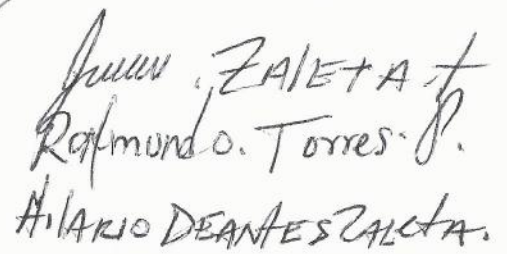 Juan . ZAlEtA t
Raymundo. Torres. P.
HilARIO DEANtES ZALEtA.